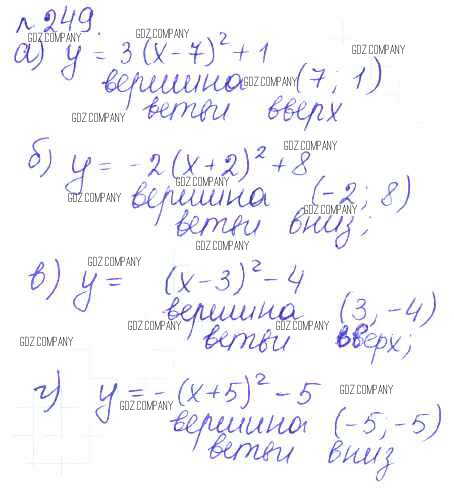 №249.
GDZ.COMPANY GDZ.COMPANY
а) y = 3(x-7)² + 1
GDZ.COMPANY
вершина (7; 1)
ветви вверх
GDZ.COMPANY
GDZ.COMPANY
б) y = -2(x+2)² + 8
GDZ.COMPANY
GDZ.COMPANY
вершина (-2; 8)
GDZ.COMPANY
ветви вниз;
GDZ.COMPANY
GDZ.COMPANY
в) y = (x-3)² - 4
вершина (3, -4)
GDZ.COMPANY GDZ.COMPANY
ветви вверх;
GDZ.COMPANY
г) y = -(x+5)² - 5
GDZ.COMPANY
GDZ.COMPANY
вершина (-5; -5)
GDZ.COMPANY
ветви вниз